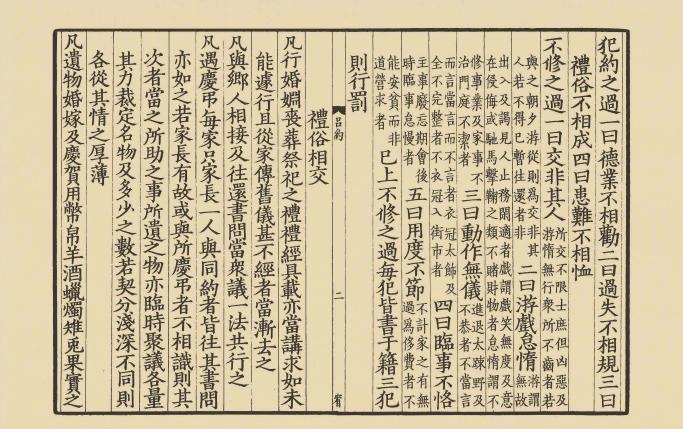 犯約之過一曰德業不相勸二曰過失不相規三曰
禮俗不相成四曰患難不相恤
不修之過一曰交非其人所交不限士庶但凶惡及游惰無行衆所不齒者若
與之朝夕游從則爲交非其人若不得已暫往還者非二曰游戲怠惰游謂無故
出入及謁見人止務閑適者戲謂戲笑無度及意在侵侮或馳馬擊鞠之類不賭財物者怠惰謂不
修事業及家事不治門庭不潔者三曰動作無儀進退太踈野及不恭者不當言
而言當言而不言者衣冠太飾及全不完整者不衣冠入街市者四曰臨事不恪
主事廢忘期會後時臨事怠慢者五曰用度不節不計家之有無過爲侈費者不
能安貧而非道營求者已上不修之過每犯皆書于籍三犯
則行罰
呂約
二
禮俗相交
凡行婚姻喪葬祭祀之禮禮經具載亦當講求如未
能遽行且從家傳舊儀甚不經者當漸去之
凡與鄉人相接及往還書問當衆議一法共行之
凡遇慶弔每家只家長一人與同約者皆往其書問
亦如之若家長有故或與所慶弔者不相識則其
次者當之所助之事所遺之物亦臨時聚議各量
其力裁定名物及多少之數若契分淺深不同則
各從其情之厚薄
凡遺物婚嫁及慶賀用幣帛羊酒蠟燭雉兎果實之